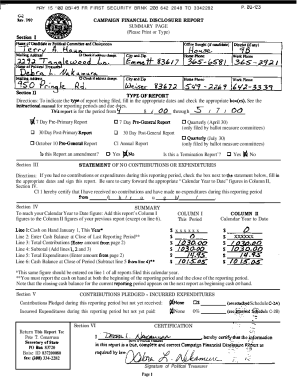 MAY 15 '00 08:49 FR FIRST SECURITY BANK 208 642 2048 TO 3342282 P.02/03
C2
CAMPAIGN FINANCIAL DISCLOSURE REPORT
SUMMARY PAGE
(Please Print or Type)
Section I
Name of Candidate or Political Committee and Chairperson
Office Sought (if candidate)
District (if any)
Terry A. House
Mailing Address
City and Zip
Home Phone
Work Phone
2292 Tanglewood Ln Emmett 83617 365-6581 365-2921
Name of Political Treasurer
Debra L. Nakamura
Mailing Address
City and Zip
Home Phone
Work Phone
950 Pringle Rd. Weiser 83672 549-2269 642-3339
Section II
TYPE OF REPORT
Directions: To indicate the type of report being filed, fill in the appropriate dates and check the appropriate box(es). See the
instruction manual for reporting periods and dates.
This report is for the period from through
7 Day Pre-Primary Report
7 Day Pre-General Report
Quarterly (April 30)
(only filed by ballot measure committees)
30 Day Post-Primary Report
30 Day Post-General Report
Quarterly (July 30)
October 10 Pre-General Report
Annual Report
(only filed by ballot measure committees)
Is this Report an amendment? Yes No
Is this a Termination Report? Yes No
Section III
STATEMENT OF NO CONTRIBUTIONS OR EXPENDITURES
Directions: If you had no contributions or expenditures during this reporting period, check the box next to the statement below, fill in
the appropriate dates and sign this report. Be sure to carry forward the appropriate "Calendar Year to Date" figures in
Section IV.
I hereby certify that I have received no contributions and have made no expenditures during this reporting period
from through
Section IV
SUMMARY
To reach your Calendar Year to Date figures: Add this report's Column I
figures to the Column II figures of your previous report (except on line 6).
COLUMN I
This Period
COLUMN II
Calendar Year to Date
Line 1: Cash on Hand January 1, This Year* $ XXXXXX $ 0
Line 2: Enter Cash Balance at Close of Last Reporting Period** $ 0 $ XXXXXX
Line 3: Total Contributions (Enter amount from page 2) $ 1030.00 $ 1030.00
Line 4: Subtotal (Add lines 1, 2 and 3) $ 1030.00 $ 1030.00
Line 5: Total Expenditures (Enter amount from page 2) $ 14.95 $ 14.95
Line 6: Cash Balance at Close of Period (Subtract line 5 from line 4)** $ 1015.05 $ 1015.05
*This same figure should be entered on line 1 of all reports filed this calendar year.
**You must report the cash on hand at both the beginning of the reporting period and the close of the reporting period.
Note that the closing cash balance for the current reporting period appears on the next report as beginning cash on hand.
Section V
CONTRIBUTIONS PLEDGED - INCURRED EXPENDITURES
Contributions Pledged during this reporting period but not yet received: None
Incurred Expenditures during this reporting period but not yet paid: None
Section VI
CERTIFICATION
Return This Report To:
Pete T. Cenarrusa
Secretary of State
PO Box 83720
Boise ID 837200080
Fax: (208) 334-2282
I, Debra L. Nakamura, hereby certify that the information
in this report is a true, complete and correct Campaign Financial Disclosure Report as
required by law.
Debra L. Nakamura
Signature of Political Treasurer
Page 1